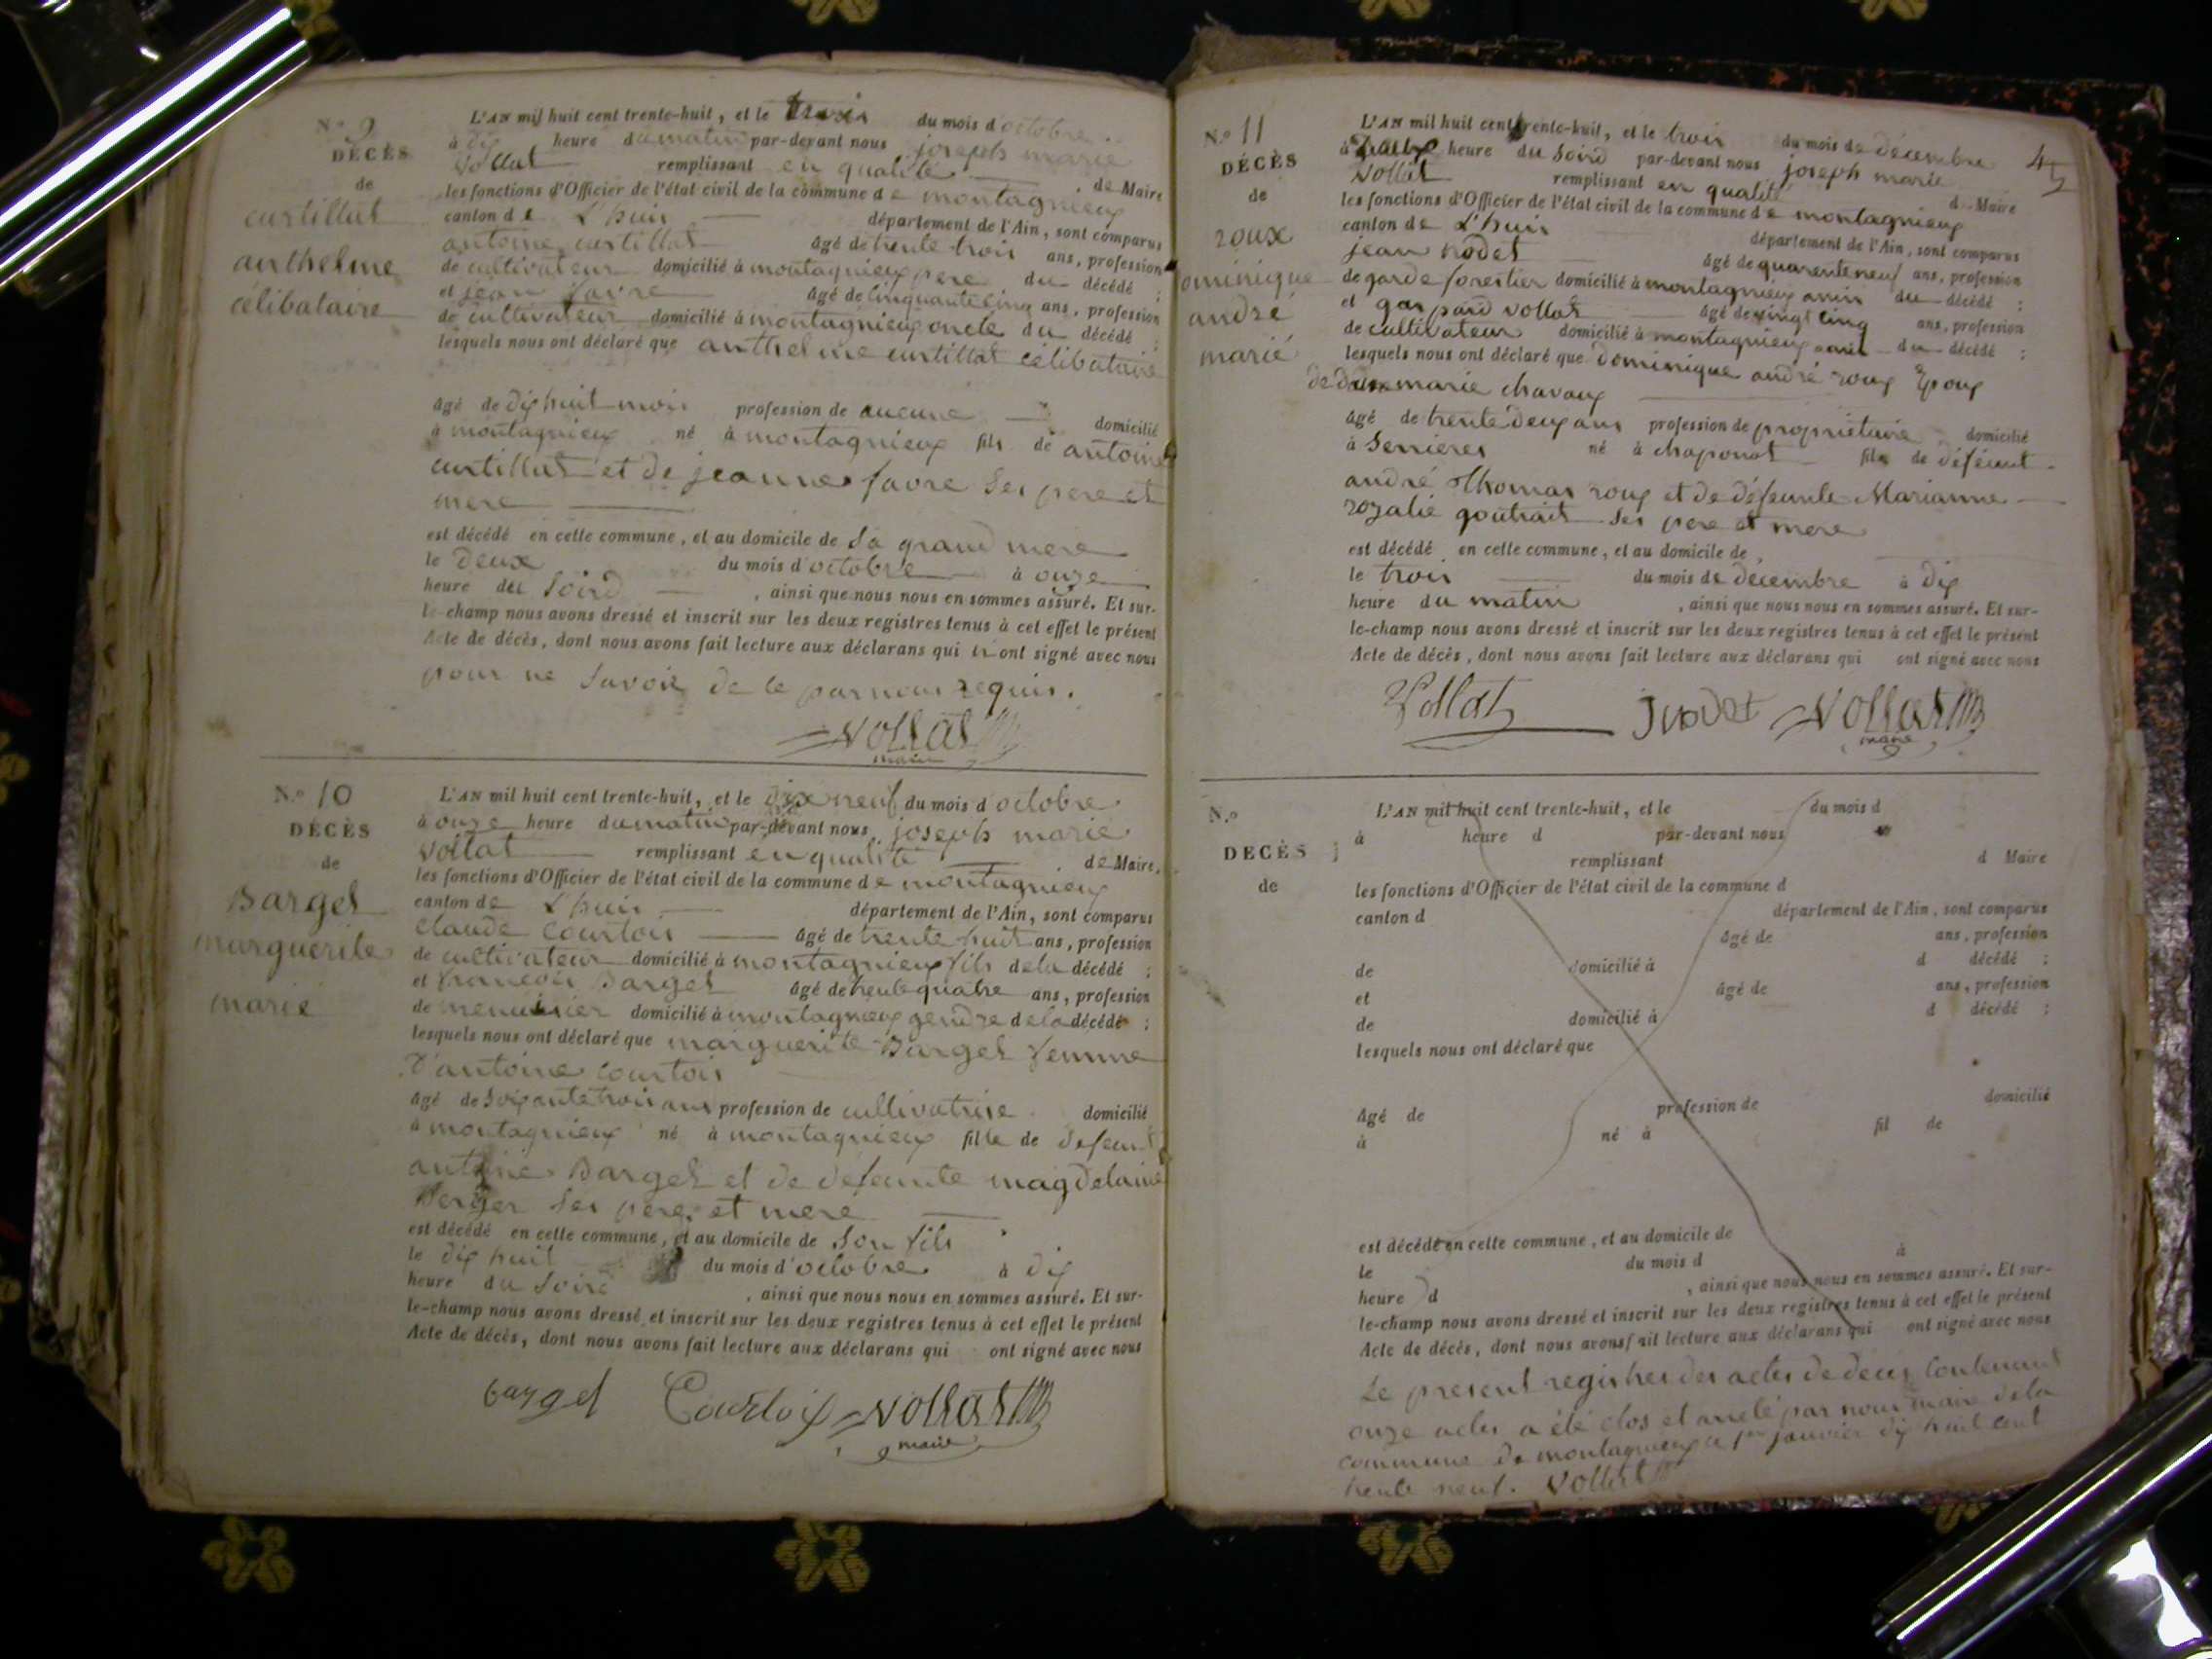 N.o 9
DÉCÈS
de
curtillat
anthelme
célibataire
L'AN mil huit cent trente-huit, et le trois du mois d'octobre
à dix heure du matin par-devant nous joseph marie
vollat remplissant en qualité de Maire
les fonctions d'Officier de l'état civil de la commune de montagnieux
canton de L'huis département de l'Ain, sont comparus
antoine curtillat âgé de trente trois ans, profession
de cultivateur domicilié à montagnieux pere du décédé ;
et jean favre âgé de cinquante cinq ans, profession
de cultivateur domicilié à montagnieux oncle du décédé ;
lesquels nous ont déclaré que anthelme curtillat célibataire
âgé de dix huit mois profession de aucune domicilié
à montagnieux né à montagnieux fils de antoine
curtillat et de jeanne favre ses pere et
mere
est décédé en cette commune, et au domicile de sa grand mere
le deux du mois d'octobre à onze
heure du soird , ainsi que nous nous en sommes assuré. Et sur-
le-champ nous avons dressé et inscrit sur les deux registres tenus à cet effet le présent
Acte de décès, dont nous avons fait lecture aux déclarans qui n'ont signé avec nous
pour ne savoir de ce par nous requis.
vollat
maire
N.o 10
DÉCÈS
de
Barget
marguerite
marié
L'AN mil huit cent trente-huit, et le dix neuf du mois d'octobre
à onze heure du matin par-devant nous joseph marie
vollat remplissant en qualité de Maire,
les fonctions d'Officier de l'état civil de la commune de montagnieux
canton de L'huis département de l'Ain, sont comparus
claude courtois âgé de trente huit ans, profession
de cultivateur domicilié à montagnieux fils de la décédé ;
et francois Barget âgé de trente quatre ans, profession
de menuisier domicilié à montagnieux gendre de la décédé ;
lesquels nous ont déclaré que marguerite Barget femme
d'antoine courtois
âgé de soixante trois ans profession de cultivatrise domicilié
à montagnieux né à montagnieux fille de defeunt
antoine Barget et de defeunte magdelaine
Berger ses pere et mere
est décédé en cette commune, et au domicile de son fils
le dix huit du mois d'octobre à dix
heure du soird , ainsi que nous nous en sommes assuré. Et sur-
le-champ nous avons dressé et inscrit sur les deux registres tenus à cet effet le présent
Acte de décès, dont nous avons fait lecture aux déclarans qui ont signé avec nous
barget Courtois vollat
maire
45
N.o 11
DÉCÈS
de
roux
ominique
andré
marié
L'AN mil huit cent trente-huit, et le trois du mois de décembre
à heure du soird par-devant nous joseph marie
vollat remplissant en qualité d Maire
les fonctions d'Officier de l'état civil de la commune de montagnieux
canton de L'huis département de l'Ain, sont comparus
jean nodet âgé de quarente neuf ans, profession
de garde forestier domicilié à montagnieux amis du décédé ;
et gaspard vollat âgé de vingt cinq ans, profession
de cultivateur domicilié à montagnieux amis du décédé ;
lesquels nous ont déclaré que dominique andré roux Epoux
de marie chavaux
âgé de trente deux ans profession de propriétaire domicilié
à Serrieres né à chaponot fils de déféunt
andré thomas roux et de déféunte Marianne
rozalie goutrait ses pere et mere
est décédé en cette commune, et au domicile de
le trois du mois de décembre à dix
heure du matin , ainsi que nous nous en sommes assuré. Et sur-
le-champ nous avons dressé et inscrit sur les deux registres tenus à cet effet le présent
Acte de décès, dont nous avons fait lecture aux déclarans qui ont signé avec nous
Vollat jnodet vollat
maire
N.o
DÉCÈS
de
L'AN mil huit cent trente-huit, et le du mois d
à heure d par-devant nous
remplissant d Maire
les fonctions d'Officier de l'état civil de la commune d
canton d département de l'Ain, sont comparus
âgé de ans, profession
de domicilié à d décédé ;
et âgé de ans, profession
de domicilié à d décédé ;
lesquels nous ont déclaré que
âgé de profession de domicilié
à né à fil de
est décédé en cette commune, et au domicile de
le du mois d à
heure d , ainsi que nous nous en sommes assuré. Et sur-
le-champ nous avons dressé et inscrit sur les deux registres tenus à cet effet le présent
Acte de décès, dont nous avons fait lecture aux déclarans qui ont signé avec nous
Le present registres des actes de deces contenant
onze actes a été clos et arreté par nous maire de la
commune de montagnieux le 1er janvier dix huit cent
trente neuf. Vollat